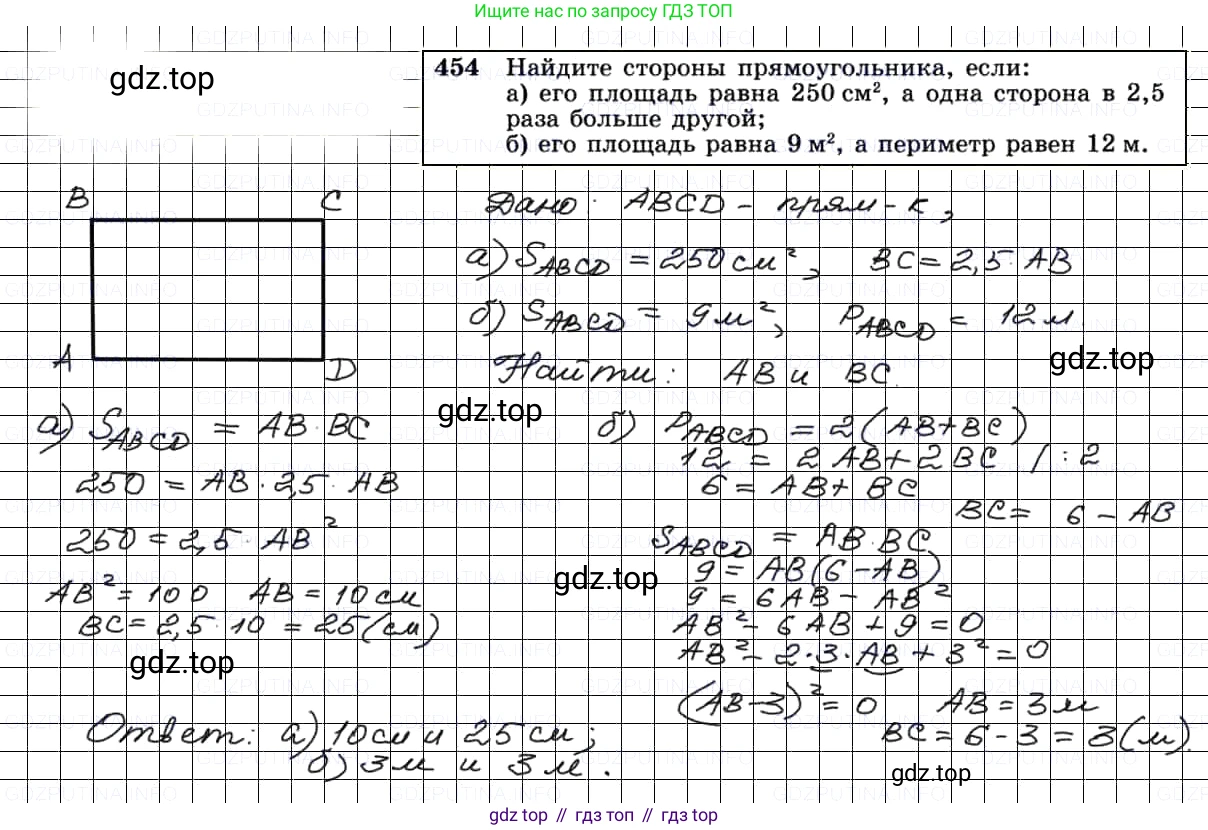 Ищите нас по запросу ГДЗ ТОП
gdz.top
454 Найдите стороны прямоугольника, если:
а) его площадь равна 250 см², а одна сторона в 2,5
раза больше другой;
б) его площадь равна 9 м², а периметр равен 12 м.
B C
A D
Дано: ABCD - прям-к,
а) S_ABCD = 250 см², BC = 2,5·AB
б) S_ABCD = 9 м², P_ABCD = 12 м.
gdz.top
Найти: AB и BC.
gdz.top
а) S_ABCD = AB·BC
250 = AB·2,5·AB
250 = 2,5·AB²
AB² = 100 AB = 10 см
BC = 2,5·10 = 25 (см)
gdz.top
б) P_ABCD = 2(AB+BC)
12 = 2AB+2BC /:2
6 = AB+BC
BC = 6 - AB
S_ABCD = AB·BC
gdz.top
9 = AB(6-AB)
9 = 6AB - AB²
AB² - 6AB + 9 = 0
AB² - 2·3·AB + 3² = 0
(AB-3)² = 0 AB = 3 м
BC = 6 - 3 = 3 (м).
Ответ: а) 10 см и 25 см;
б) 3 м и 3 м.
gdz.top
gdz топ // гдз топ // gdz top
GDZPUTINA.INFO